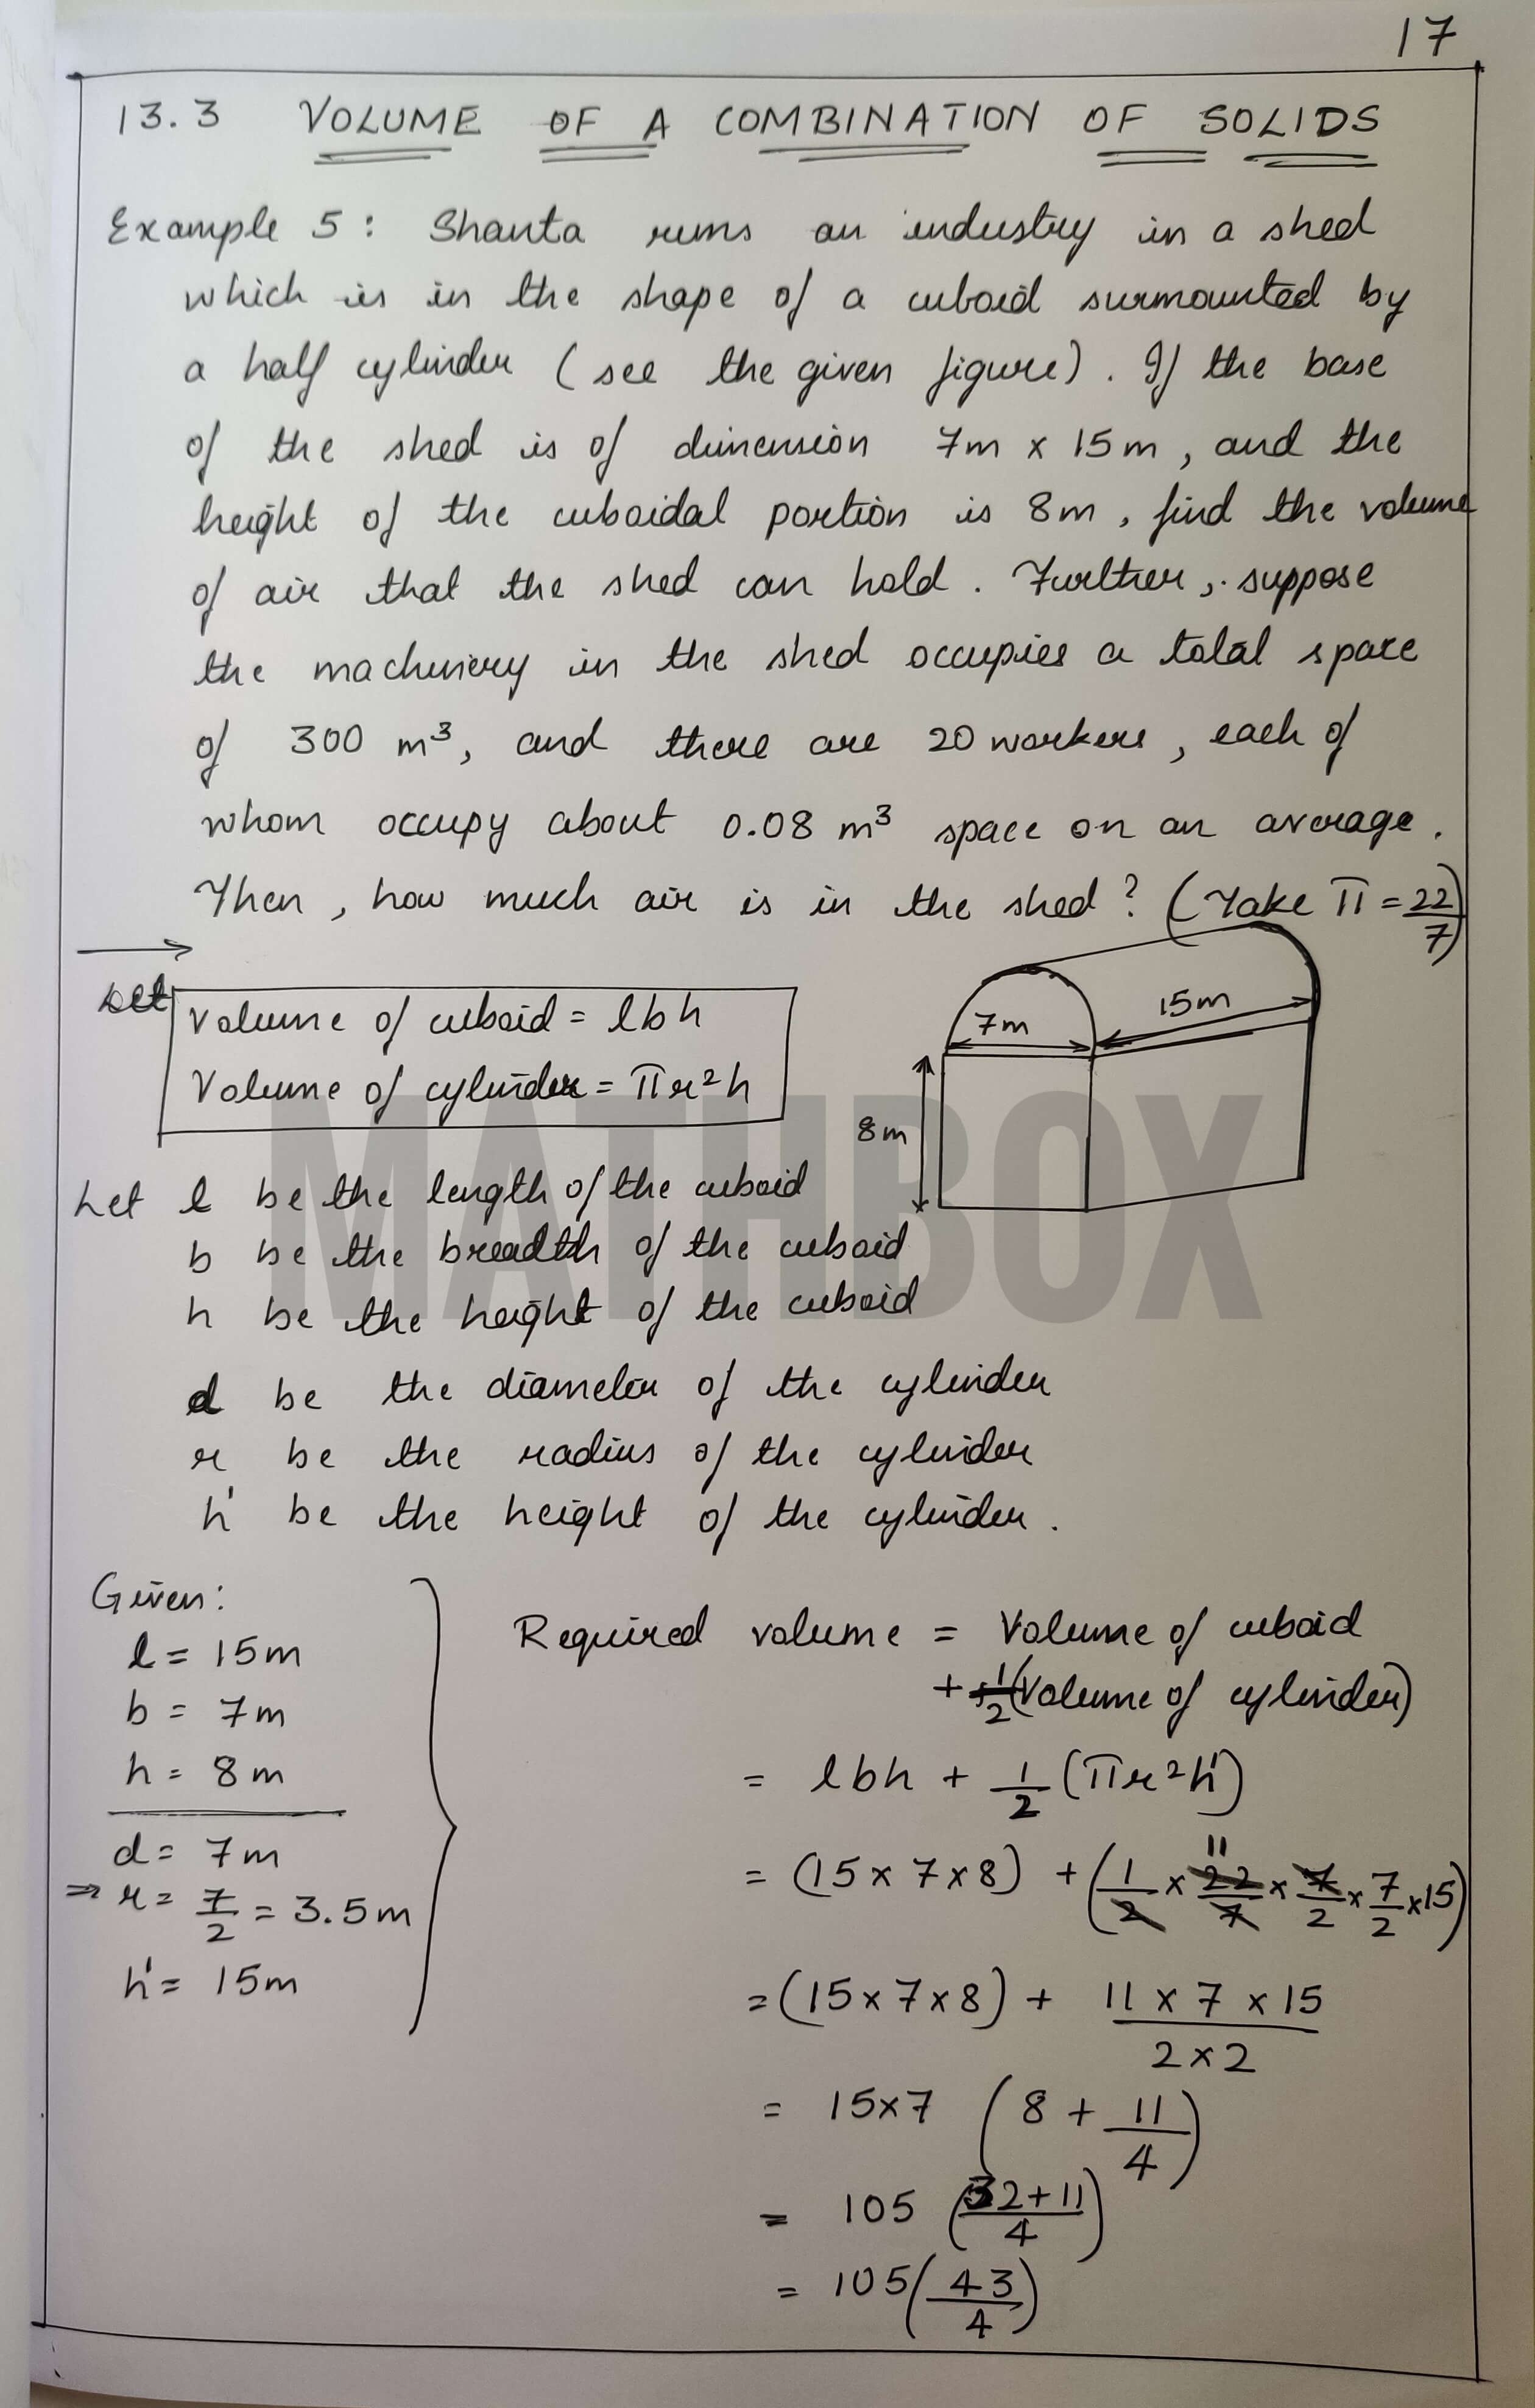 17
13.3 VOLUME OF A COMBINATION OF SOLIDS
Example 5: Shanta runs an industry in a shed
which is in the shape of a cuboid surmounted by
a half cylinder (see the given figure). If the base
of the shed is of dimension 7m x 15m, and the
height of the cuboidal portion is 8m, find the volume
of air that the shed can hold. Further, suppose
the machinery in the shed occupies a total space
of 300 m³, and there are 20 workers, each of
whom occupy about 0.08 m³ space on an average.
Then, how much air is in the shed? (Take π = 22/7)
Volume of cuboid = lbh
Volume of cylinder = πr²h
7m
15m
8m
MATHBOX
Let l be the length of the cuboid
b be the breadth of the cuboid
h be the height of the cuboid
d be the diameter of the cylinder
r be the radius of the cylinder
h' be the height of the cylinder.
Given:
l = 15m
b = 7m
h = 8m
d = 7m
⇒ r = 7/2 = 3.5m
h' = 15m
Required volume = Volume of cuboid
+ 1/2 (Volume of cylinder)
= lbh + 1/2 (πr²h')
11
= (15 x 7 x 8) + (1/2 x 22/7 x 7/2 x 7/2 x 15)
= (15 x 7 x 8) + 11 x 7 x 15 / 2 x 2
= 15x7 (8 + 11/4)
= 105 (32+11/4)
= 105 (43/4)